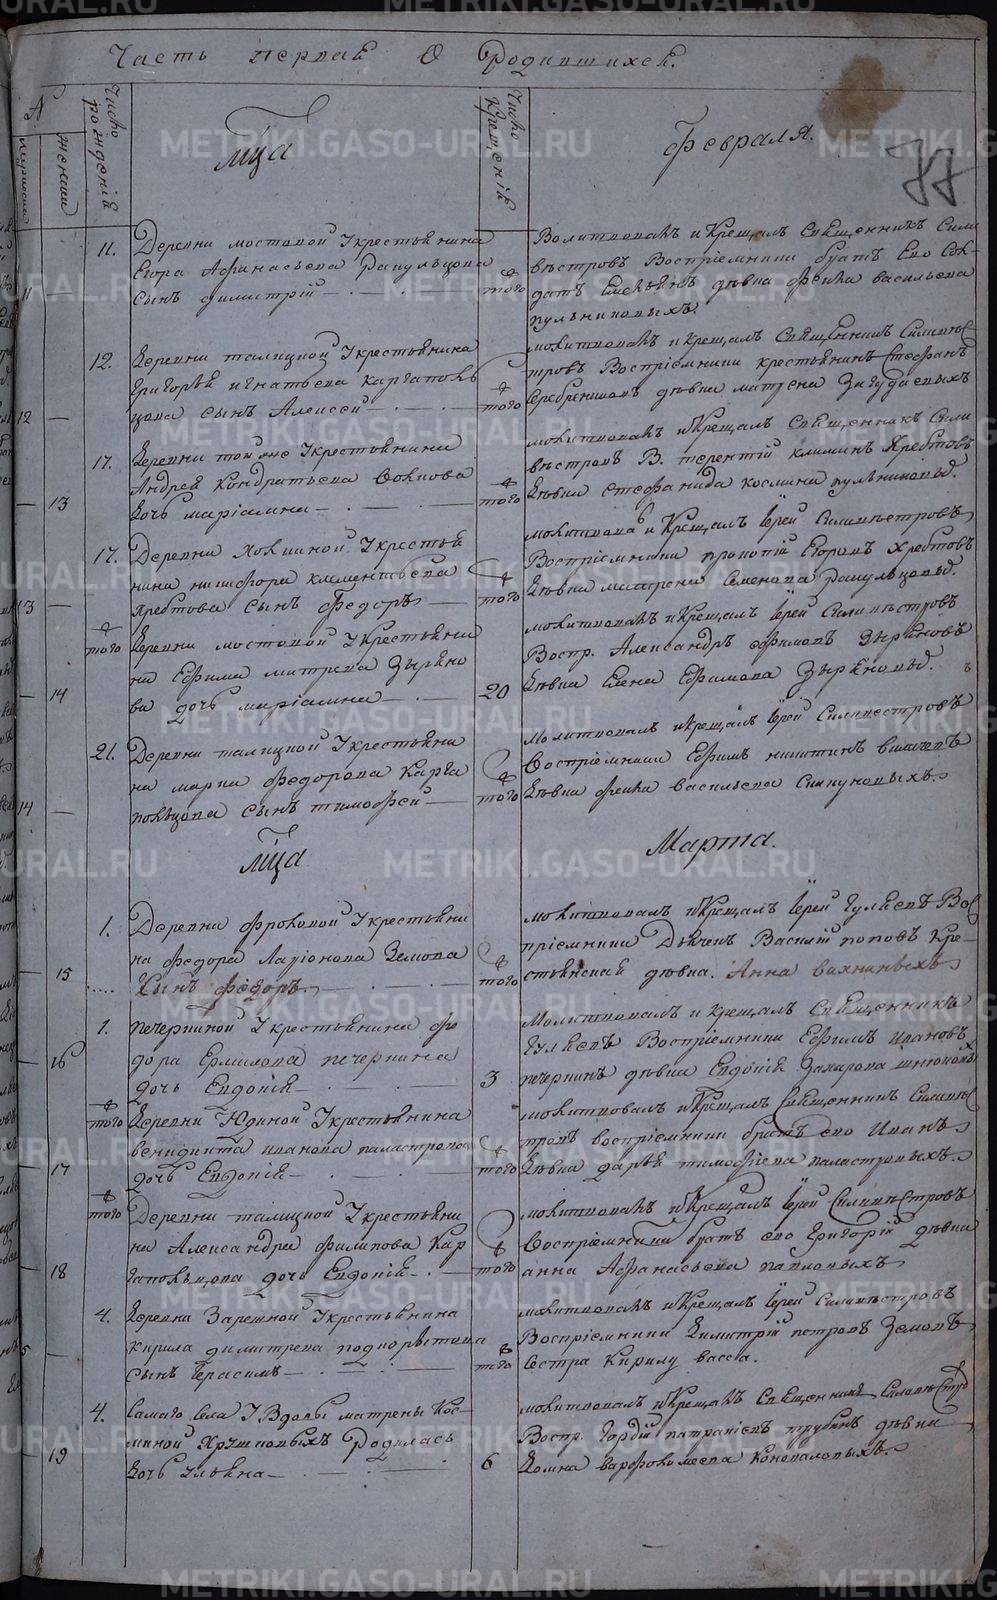 Часть первая О Родившихся.
Число рождения
Число Крещения
мужеска
женска
Мца
Февраля.
77
11. Деревни мостовой У крестьянина
Егора Афанасьева Рапульцова
11 — сынъ димитрiй — того
Молитвовалъ и Крещалъ Священникъ Силивѣстровъ Воспрiемники братъ Его
дѣвка Фекла васильева
пульниковыхъ.
12. Деревни талицкой У крестьянина
Григорья игнатьева Каргаполь
12 — цова сынъ Алексей — того
молитвовалъ и Крещалъ Священникъ Силивѣс
тровъ Воспрiемники крестьянинъ Стефанъ
Серебрениковъ дѣвка матрена Загудаевыхъ
17. Деревни той же У крестьянина
Андрея Кондратьева Вокпова
— 13 Дочь марiамна — того
молитвовалъ и Крещалъ Священникъ Сили
вѣстровъ В. терентiй климинъ Хребтовъ
Дѣвка стефанида космина пульникова.
17. Деревни Холкиной У крестья
нина никифора климентьева
13 — хребтова сынъ Федоръ — того
молитвовалъ и Крещалъ Iерей Силивѣстровъ
Воспрiемники прокопiй Егоровъ Хребтовъ
Дѣвка матрена Семенова Рапульцова.
того Деревни мостовой У Крестьяни
на Ефима митрева Зыряно
— 14 ва дочь марiамна — 20
молитвовалъ и Крещалъ Iерей Силивѣстровъ
Воспр. Александръ ефимовъ Зыряновъ
Дѣвка Елена Ефимова Зырянова.
21. Деревни талицкой У крестьяни
на марка Федорова Карга
14 — польцова сынъ тимофей — того
Молитвовалъ и Крещалъ Iерей Силивестровъ
Воспрiемники Ефимъ никитинъ
Дѣвка фекла васильева Сапуновыхъ.
Мца
Марта.
1. Деревни фроловой У крестьяни
на федора Ларiонова Земова
15 Сынъ федоръ. — того
молитвовалъ и Крещалъ Iерей Гуляевъ Вос
прiемники Дьячекъ Василiй поповъ Кре-
стьянская дѣвка. Анна вахниныхъ
1. печеркиной У Крестьянина Фе
дора Ермилова печеркина
— 16 дочь Евдокiя — 3
Молитвовалъ и Крещалъ Священникъ
Гуляевъ Воспрiемники Ефимъ Ивановъ
печеркинъ дѣвка Евдокiя Захарова
того Деревни Юдиной У Крестьянина
венидикта иванова паластрова
— 17 дочь Евдокiя — того
молитвовалъ и Крещалъ Священникъ Силивѣс
тровъ воспрiемники братъ его Иванъ
Дѣвка дарья тимофiева паластровыхъ.
того Деревни талицкой У крестьяни
на Александра филипова Кар
— 18 гапольцова дочь Евдокiя — того
молитвовалъ и Крещалъ Iерей Силивѣстровъ
Воспрiемники братъ его Григорiй дѣвка
анна Афанасьева павловыхъ
4. Деревни Зарешной У крестьянина
кирила димитрева подкорытова
5 — сынъ Герасимъ — того
молитвовалъ и Крещалъ Iерей Силивѣстровъ
Воспрiемники Димитрiй петровъ Земовъ
Сестра Кирилу васса.
4. Самаго села У Вдовы матрены Кос-
миной Хрушковыхъ Родилась
— 19 Дочь ульяна — 6
молитвовалъ и Крещалъ Священникъ Силивѣстр
Воспр. Гордiй патракiевъ трубинъ дѣвка
Домна варфоломеева Коноваловыхъ.
METRIKI.GASO-URAL.RU